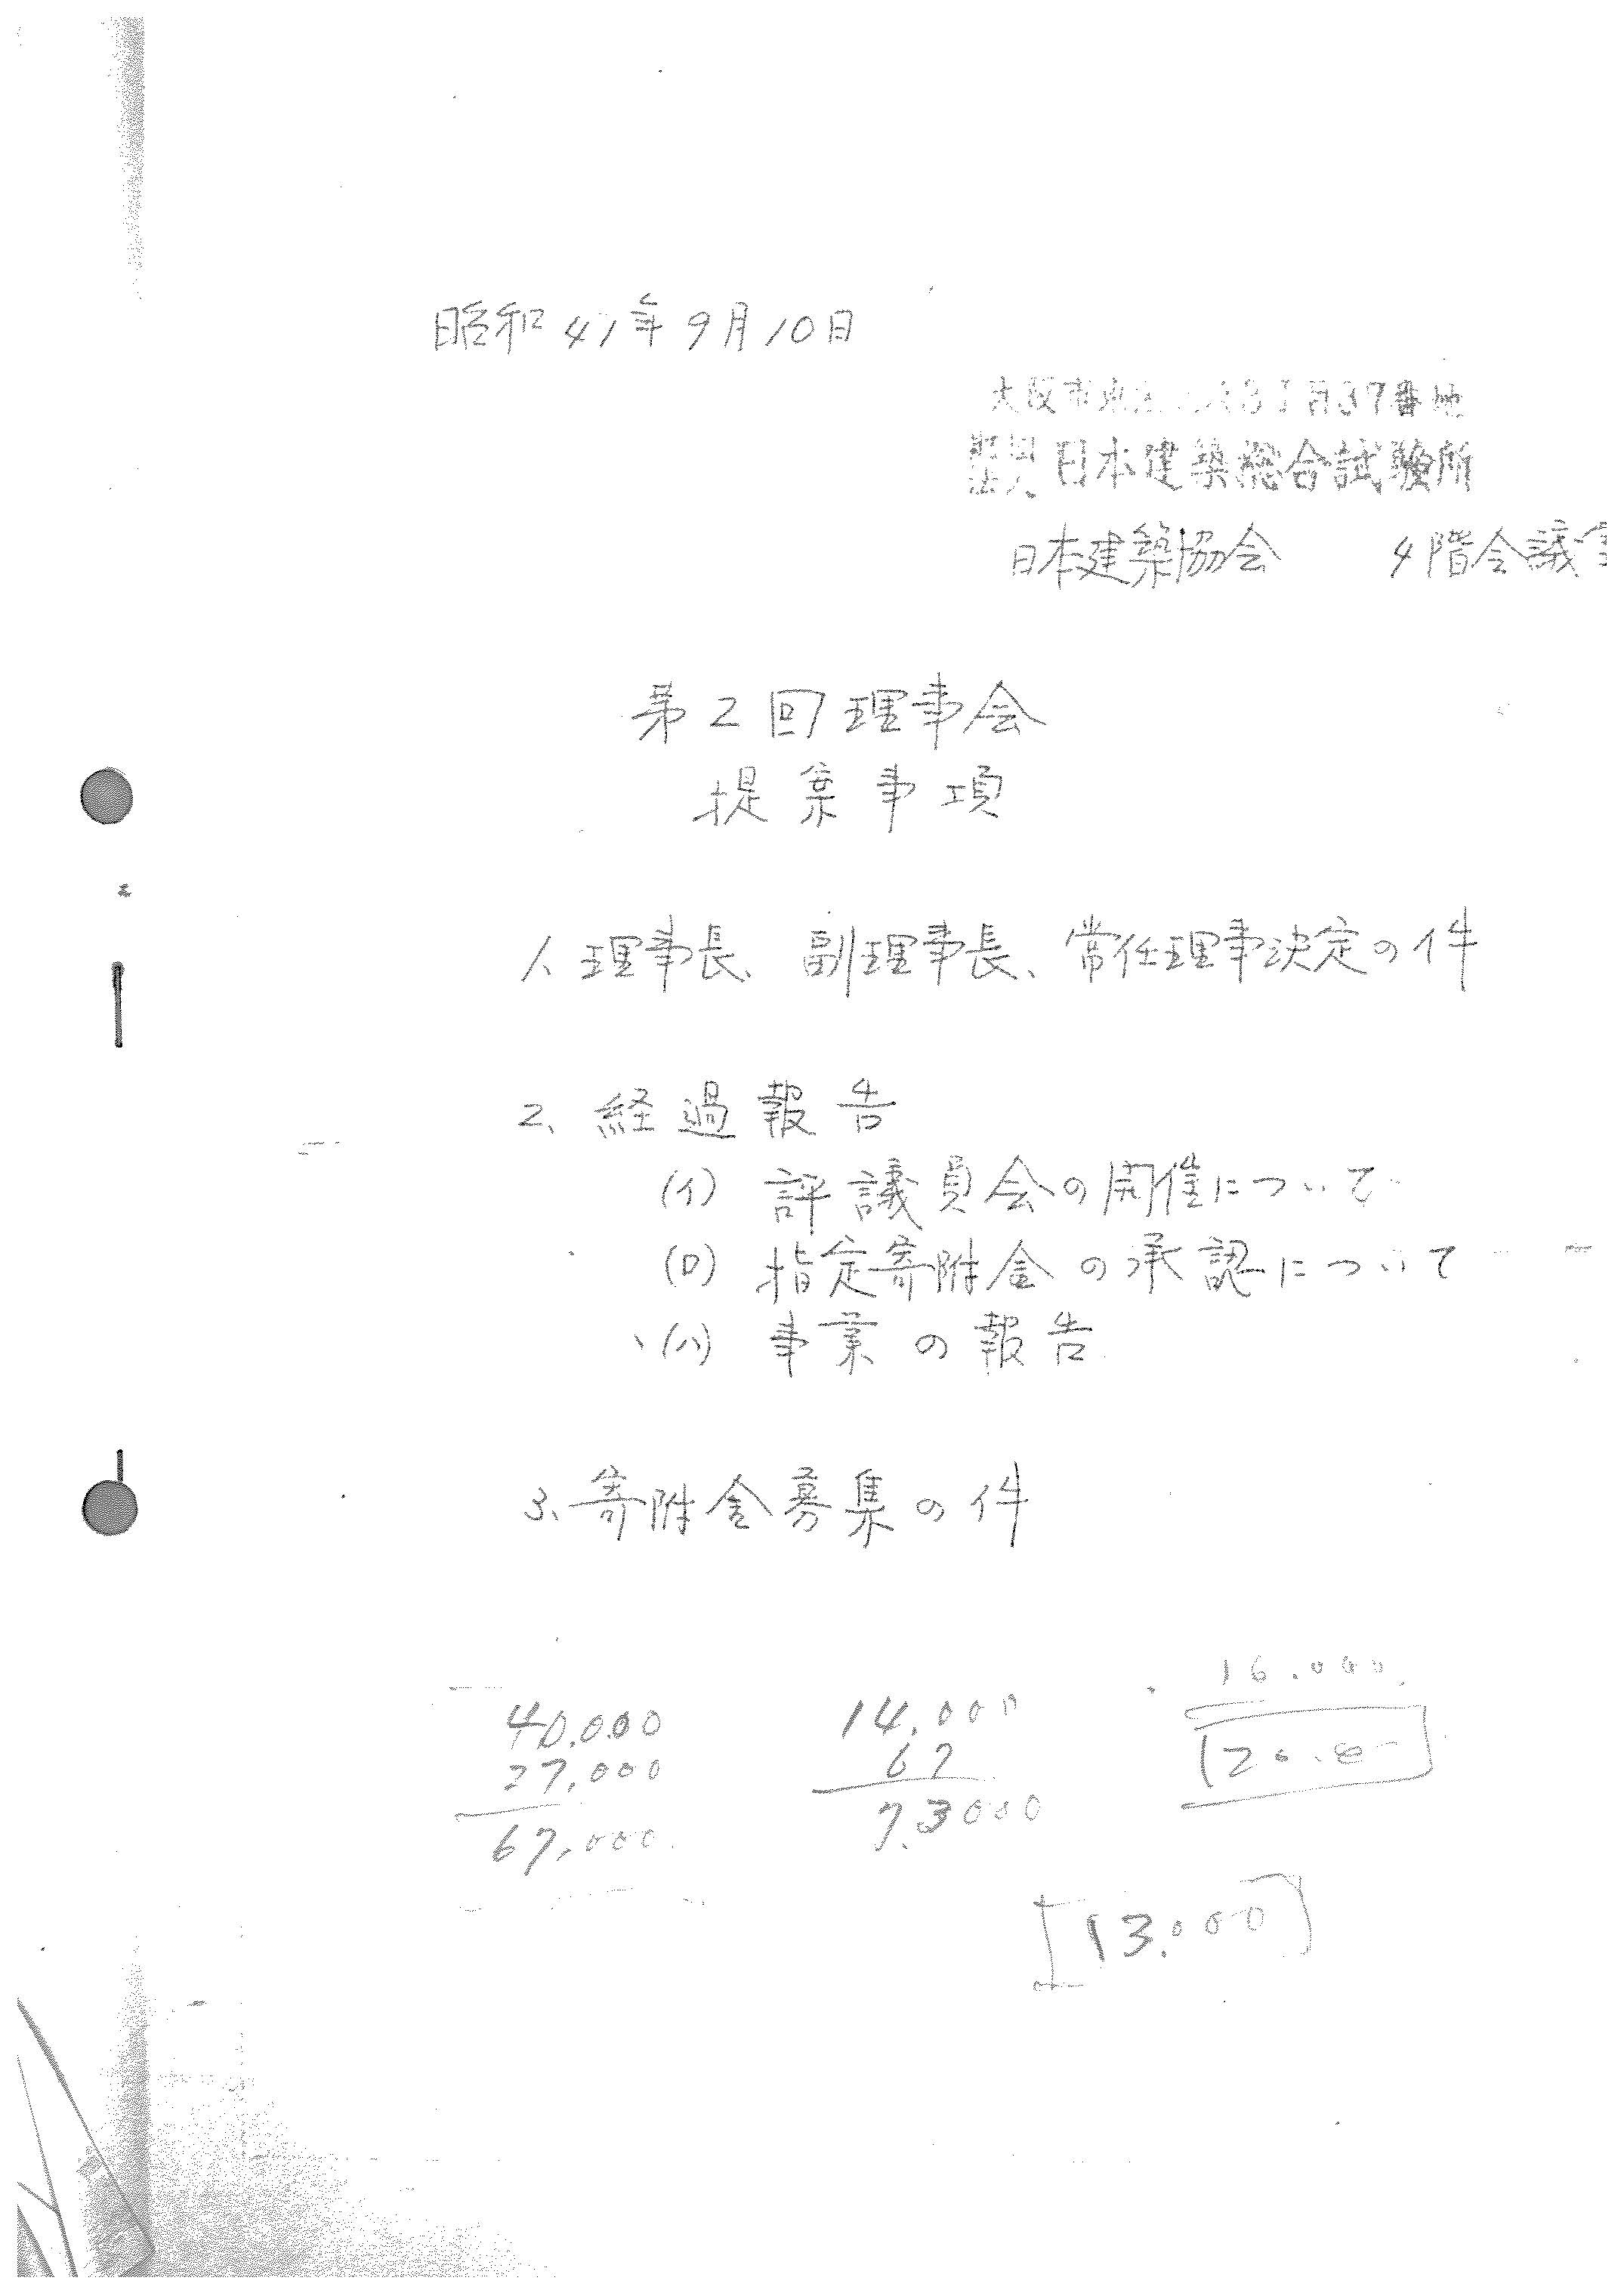 昭和41年9月10日
大阪市東 3丁目37番地
財団法人 日本建築総合試験所
日本建築協会 4階会議室
第2回理事会
提案事項
1、理事長、副理事長、常任理事決定の件
2、経過報告
(イ) 評議員会の開催について
(ロ) 指定寄附金の承認について
(ハ) 事業の報告
3、寄附金募集の件
16.000
40.000 14.000
27,000 67
67,000 7.3000
13.000